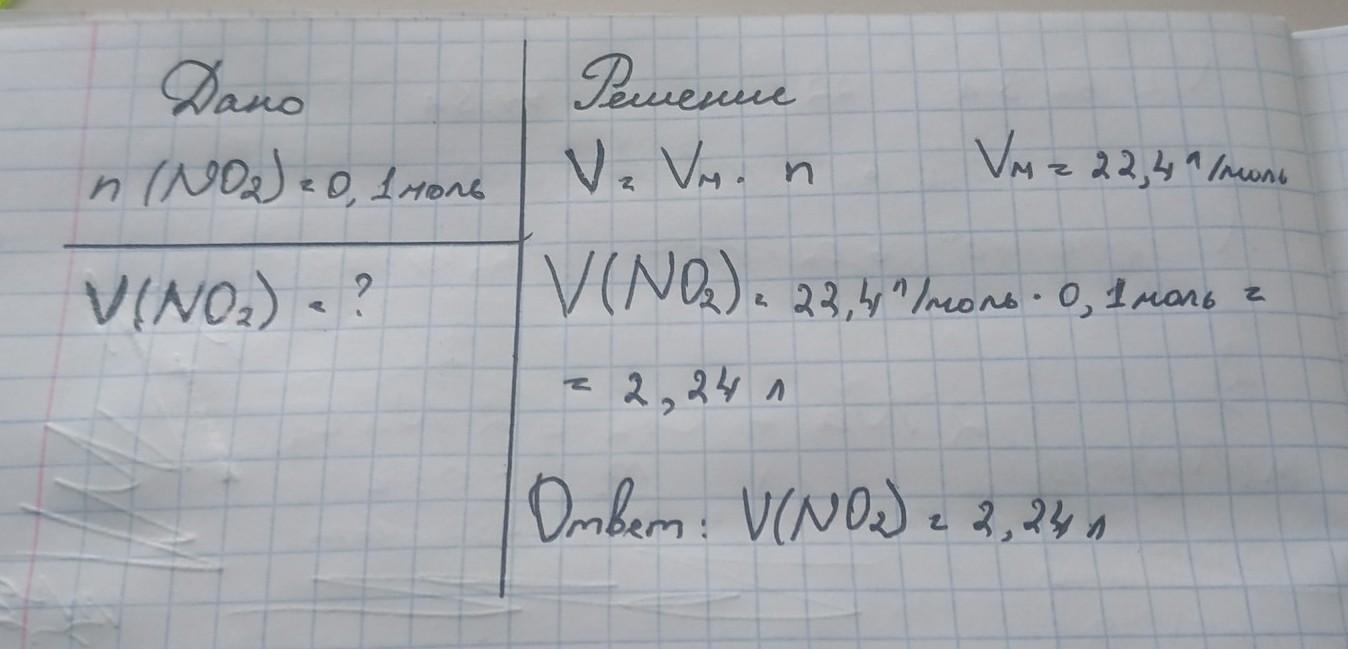 Дано
n (NO₂) = 0,1 моль
V(NO₂) = ?
Решение
V = Vм · n     Vм = 22,4 л/моль
V(NO₂) = 22,4 л/моль · 0,1 моль =
= 2,24 л
Ответ: V(NO₂) = 2,24 л